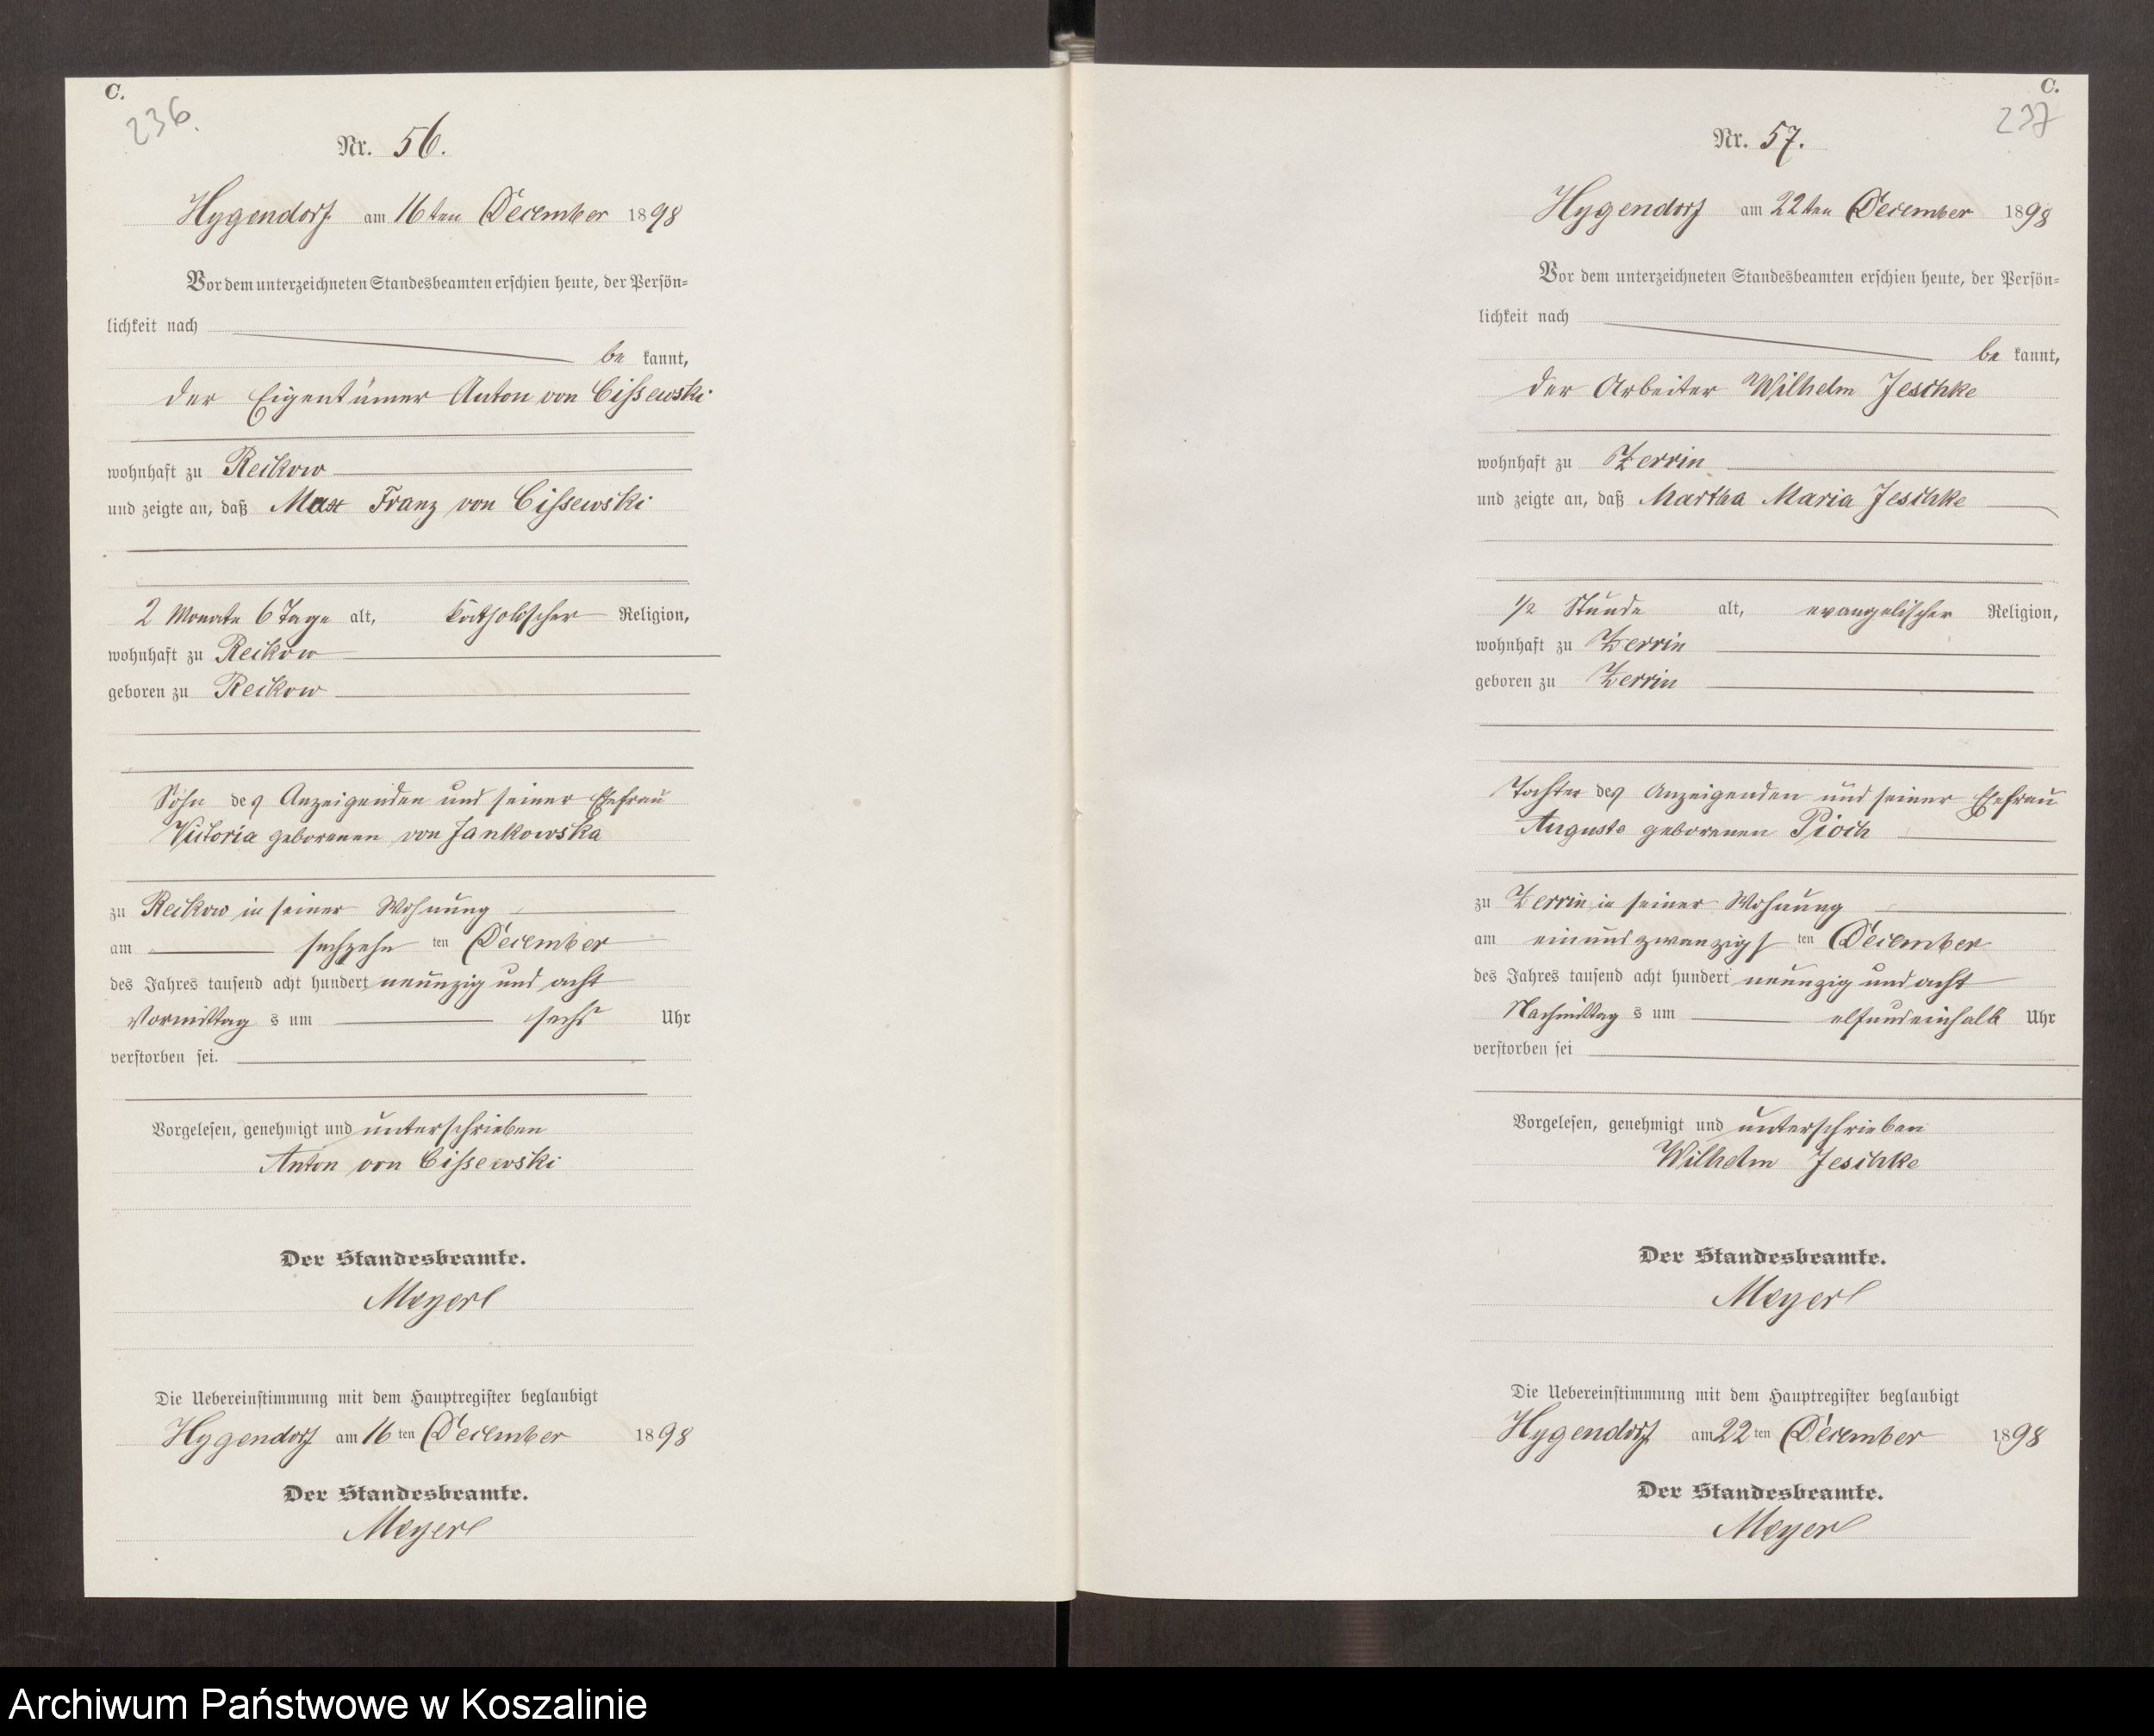 C.
236.
Nr. 56.
Hygendorf am 16ten December 1898
Vor dem unterzeichneten Standesbeamten erschien heute, der Persön-
lichkeit nach
be kannt,
der Eigentümer Anton von Cissewski
wohnhaft zu Reckow
und zeigte an, daß Max Franz von Cissewski
2 Monate 6 Tage alt, katholischer Religion,
wohnhaft zu Reckow
geboren zu Reckow
Sohn des Anzeigenden und seiner Ehefrau
Victoria geborenen von Jankowska
zu Reckow in seiner Wohnung
am sechzehn ten December
des Jahres tausend acht hundert neunzig und acht
Vormittag s um sechs Uhr
verstorben sei.
Vorgelesen, genehmigt und unterschrieben
Anton von Cissewski
Der Standesbeamte.
Meyerl
Die Uebereinstimmung mit dem Hauptregister beglaubigt
Hygendorf am 16 ten December 1898
Der Standesbeamte.
Meyerl
C.
237
Nr. 57.
Hygendorf am 22ten December 1898
Vor dem unterzeichneten Standesbeamten erschien heute, der Persön-
lichkeit nach
be kannt,
der Arbeiter Wilhelm Jeschke
wohnhaft zu Zerrin
und zeigte an, daß Martha Maria Jeschke
1/2 Stunde alt, evangelischer Religion,
wohnhaft zu Zerrin
geboren zu Zerrin
Tochter des Anzeigenden und seiner Ehefrau
Auguste geborenen Pioch
zu Zerrin in seiner Wohnung
am einundzwanzigs ten December
des Jahres tausend acht hundert neunzig und acht
Nachmittag s um elfundeinhalb Uhr
verstorben sei
Vorgelesen, genehmigt und unterschrieben
Wilhelm Jeschke
Der Standesbeamte.
Meyerl
Die Uebereinstimmung mit dem Hauptregister beglaubigt
Hygendorf am 22 ten December 1898
Der Standesbeamte.
Meyerl
Archiwum Państwowe w Koszalinie